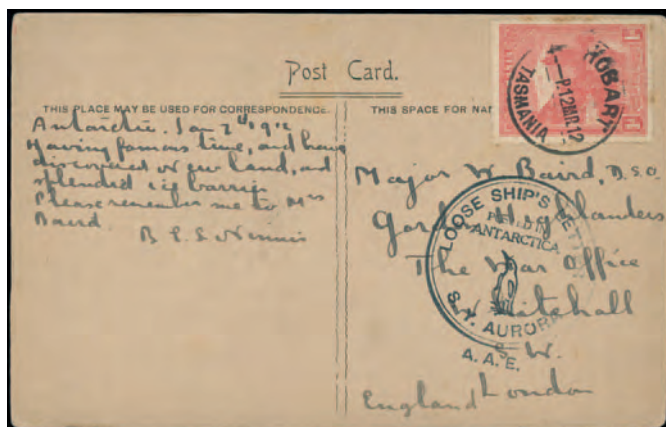 Post Card.
THIS PLACE MAY BE USED FOR CORRESPONDENCE.
Antarctic. Jan 7th 1912
Having famous time, and have
discovered new land, and
splendid ice barrier
Please remember me to Mrs
Baird.
B. E. S. Ninnis
THIS SPACE FOR
HOBART
P12MR.12
TASMANIA
Major W Baird, D.S.O.
Gordon Highlanders
The War Office
Whitehall
S. W.
London
England
LOOSE SHIP'S LETTER
POSTED IN
ANTARCTICA
S.Y. AURORA
A.A.E.